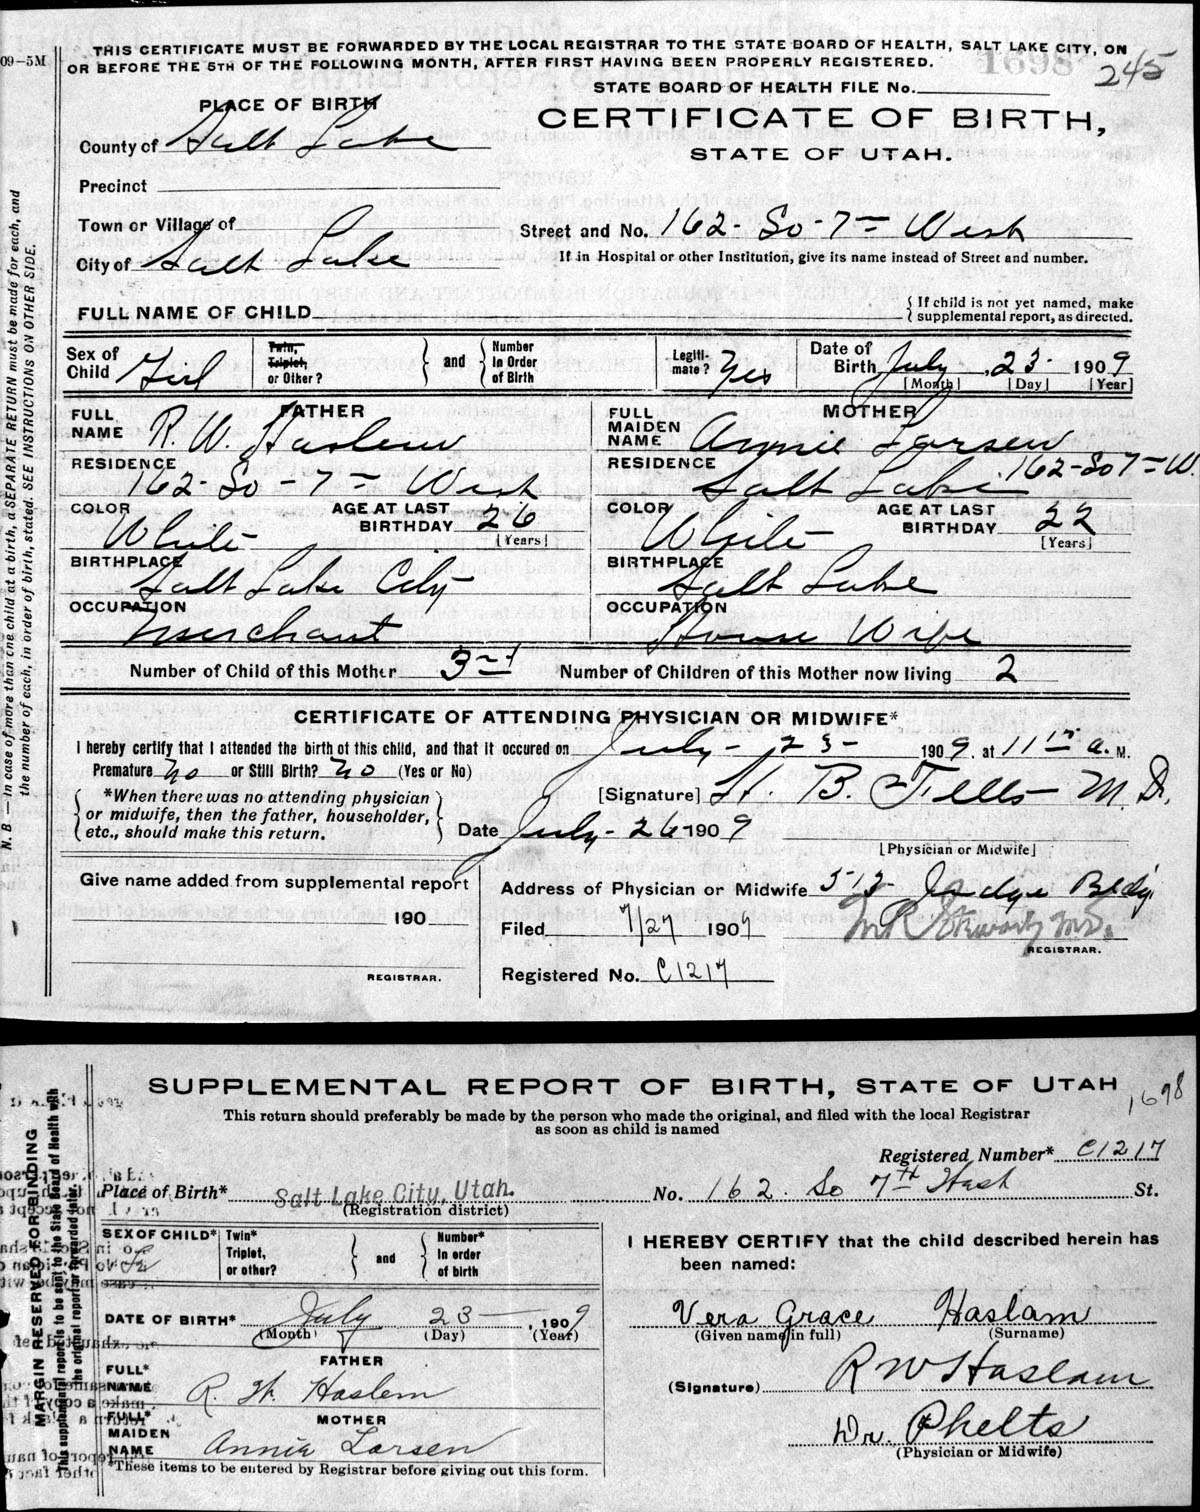 09-5M
THIS CERTIFICATE MUST BE FORWARDED BY THE LOCAL REGISTRAR TO THE STATE BOARD OF HEALTH, SALT LAKE CITY, ON
OR BEFORE THE 5TH OF THE FOLLOWING MONTH, AFTER FIRST HAVING BEEN PROPERLY REGISTERED.
1698
245
STATE BOARD OF HEALTH FILE No.
PLACE OF BIRTH
CERTIFICATE OF BIRTH,
STATE OF UTAH.
County of Salt Lake
Precinct
Town or Village of
Street and No. 162- So-7th West
City of Salt Lake
If in Hospital or other Institution, give its name instead of Street and number.
FULL NAME OF CHILD
{ If child is not yet named, make
supplemental report, as directed.
Sex of Child Girl
Twin, Triplet, or Other?
and
Number In Order of Birth
Legiti-mate? Yes
Date of Birth July 23 1909
[Month] [Day] [Year]
FATHER
FULL NAME R. W. Haslem
MOTHER
FULL MAIDEN NAME Annie Larsen
RESIDENCE 162- So-7th West
RESIDENCE Salt Lake 162-So 7th W.
COLOR White
AGE AT LAST BIRTHDAY 26 [Years]
COLOR White
AGE AT LAST BIRTHDAY 22 [Years]
BIRTHPLACE Salt Lake City
BIRTHPLACE Salt Lake
OCCUPATION Merchant
OCCUPATION House Wife
Number of Child of this Mother 3rd
Number of Children of this Mother now living 2
CERTIFICATE OF ATTENDING PHYSICIAN OR MIDWIFE*
I hereby certify that I attended the birth of this child, and that it occured on July - 23 - 1909. at 11 a. M.
Premature No or Still Birth? No (Yes or No)
*When there was no attending physician
or midwife, then the father, householder,
etc., should make this return.
[Signature] M. D.
Date July - 26 - 1909
[Physician or Midwife]
Give name added from supplemental report
190
REGISTRAR.
Address of Physician or Midwife 513- Judge Bldg
Filed 7/27 1909
REGISTRAR.
Registered No. C1217
N. B. — In case of more than one child at a birth, a SEPARATE RETURN must be made for each, and
the number of each, in order of birth, stated. SEE INSTRUCTIONS ON OTHER SIDE.
SUPPLEMENTAL REPORT OF BIRTH, STATE OF UTAH
1698
This return should preferably be made by the person who made the original, and filed with the local Registrar
as soon as child is named
Registered Number* C1217
Place of Birth* Salt Lake City, Utah.
No. 162. So 7TH West St.
(Registration district)
SEX OF CHILD*
Twin* Triplet, or other?
and
Number* In order of birth
I HEREBY CERTIFY that the child described herein has
been named:
DATE OF BIRTH* July 23 , 1909
(Month) (Day) (Year)
Vera Grace Haslam
(Given name in full) (Surname)
FATHER
FULL* NAME R. W. Haslem
(Signature) R W Haslam
MOTHER
FULL* MAIDEN NAME Annie Larsen
Dr. Phelts
(Physician or Midwife)
*These items to be entered by Registrar before giving out this form.
MARGIN RESERVED FOR BINDING
This supplemental report is to be sent to the State Board of Health with
the original report or forwarded later.